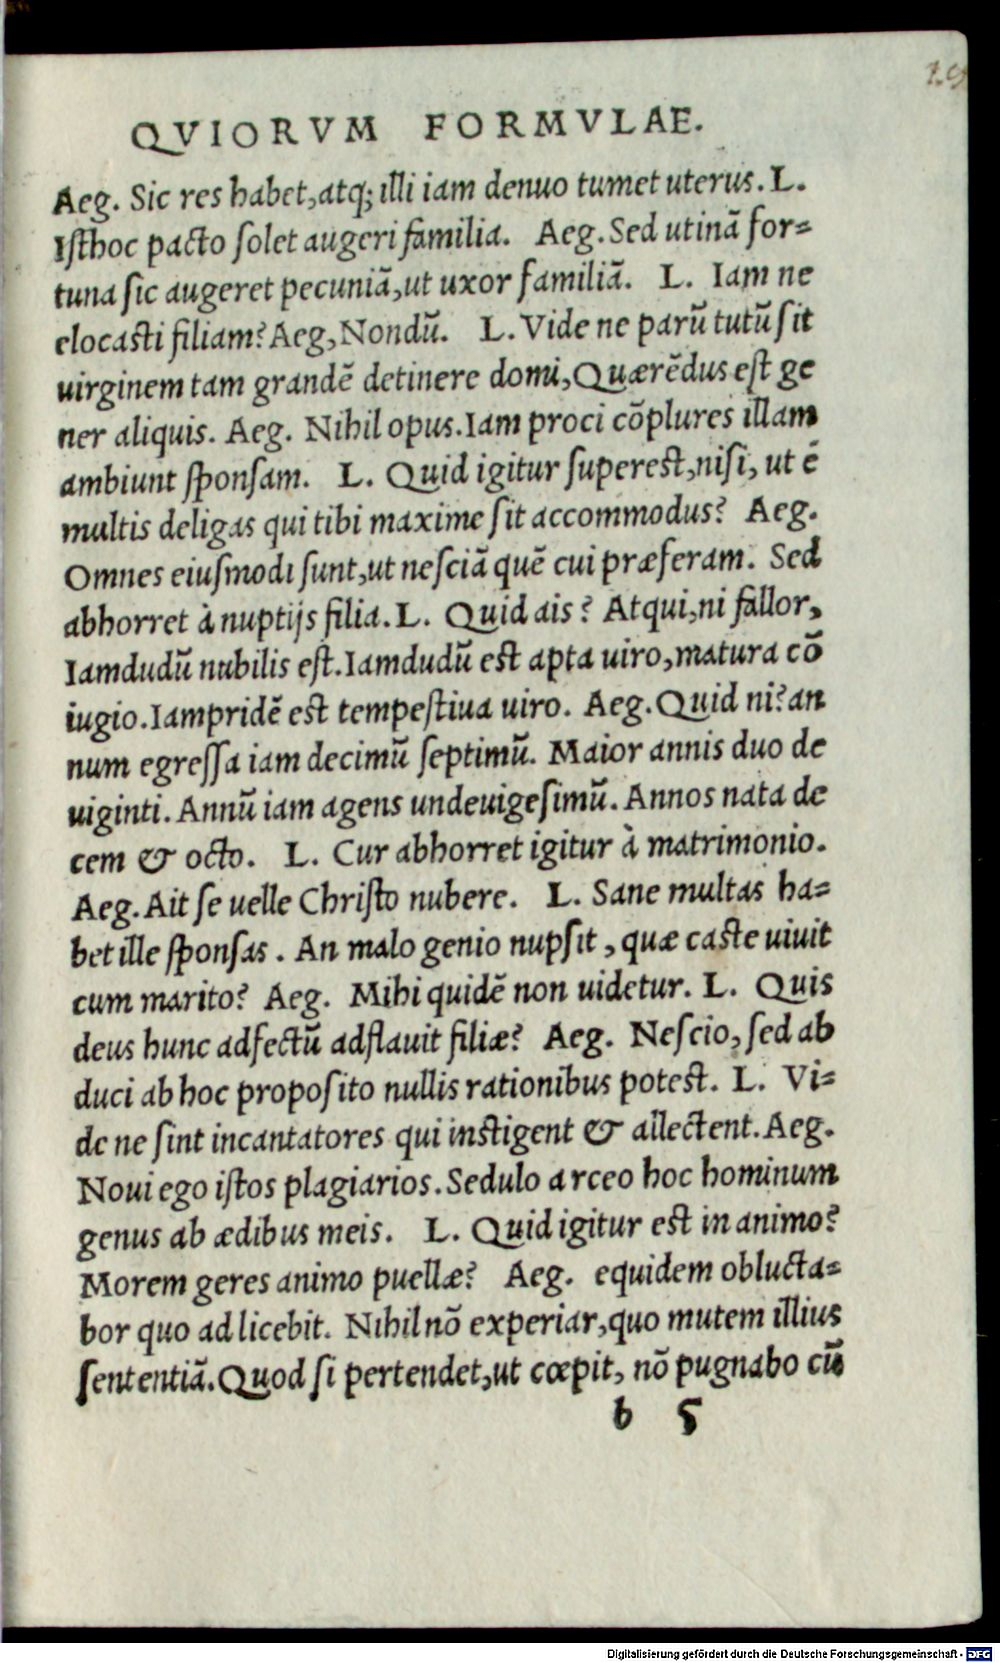 QVIORVM FORMVLAE.
Aeg. Sic res habet, atq; illi iam denuo tumet uterus. L.
Isthoc pacto solet augeri familia. Aeg. Sed utinã for-
tuna sic augeret pecuniã, ut uxor familiã. L. Iam ne
elocasti filiam? Aeg, Nondũ. L. Vide ne parũ tutũ sit
uirginem tam grandẽ detinere domi, Quærẽdus est ge
ner aliquis. Aeg. Nihil opus. Iam proci cõplures illam
ambiunt sponsam. L. Quid igitur superest, nisi, ut ẽ
multis deligas qui tibi maxime sit accommodus? Aeg.
Omnes eiusmodi sunt, ut nesciã quẽ cui præferam. Sed
abhorret à nuptijs filia. L. Quid ais? Atqui, ni fallor,
Iamdudũ nubilis est. Iamdudũ est apta uiro, matura cõ
iugio. Iampridẽ est tempestiua uiro. Aeg. Quid ni? an
num egressa iam decimũ septimũ. Maior annis duo de
uiginti. Annũ iam agens undeuigesimũ. Annos nata de
cem & octo. L. Cur abhorret igitur à matrimonio.
Aeg. Ait se uelle Christo nubere. L. Sane multas ha-
bet ille sponsas. An malo genio nupsit, quæ caste uiuit
cum marito? Aeg. Mihi quidẽ non uidetur. L. Quis
deus hunc adfectũ adflauit filiæ? Aeg. Nescio, sed ab
duci ab hoc proposito nullis rationibus potest. L. Vi-
de ne sint incantatores qui instigent & allectent. Aeg.
Noui ego istos plagiarios. Sedulo arceo hoc hominum
genus ab ædibus meis. L. Quid igitur est in animo?
Morem geres animo puellæ? Aeg. equidem oblucta-
bor quo ad licebit. Nihil nõ experiar, quo mutem illius
sententiã. Quod si pertendet, ut cœpit, nõ pugnabo cũ
b 5
Digitalisierung gefördert durch die Deutsche Forschungsgemeinschaft - DFG